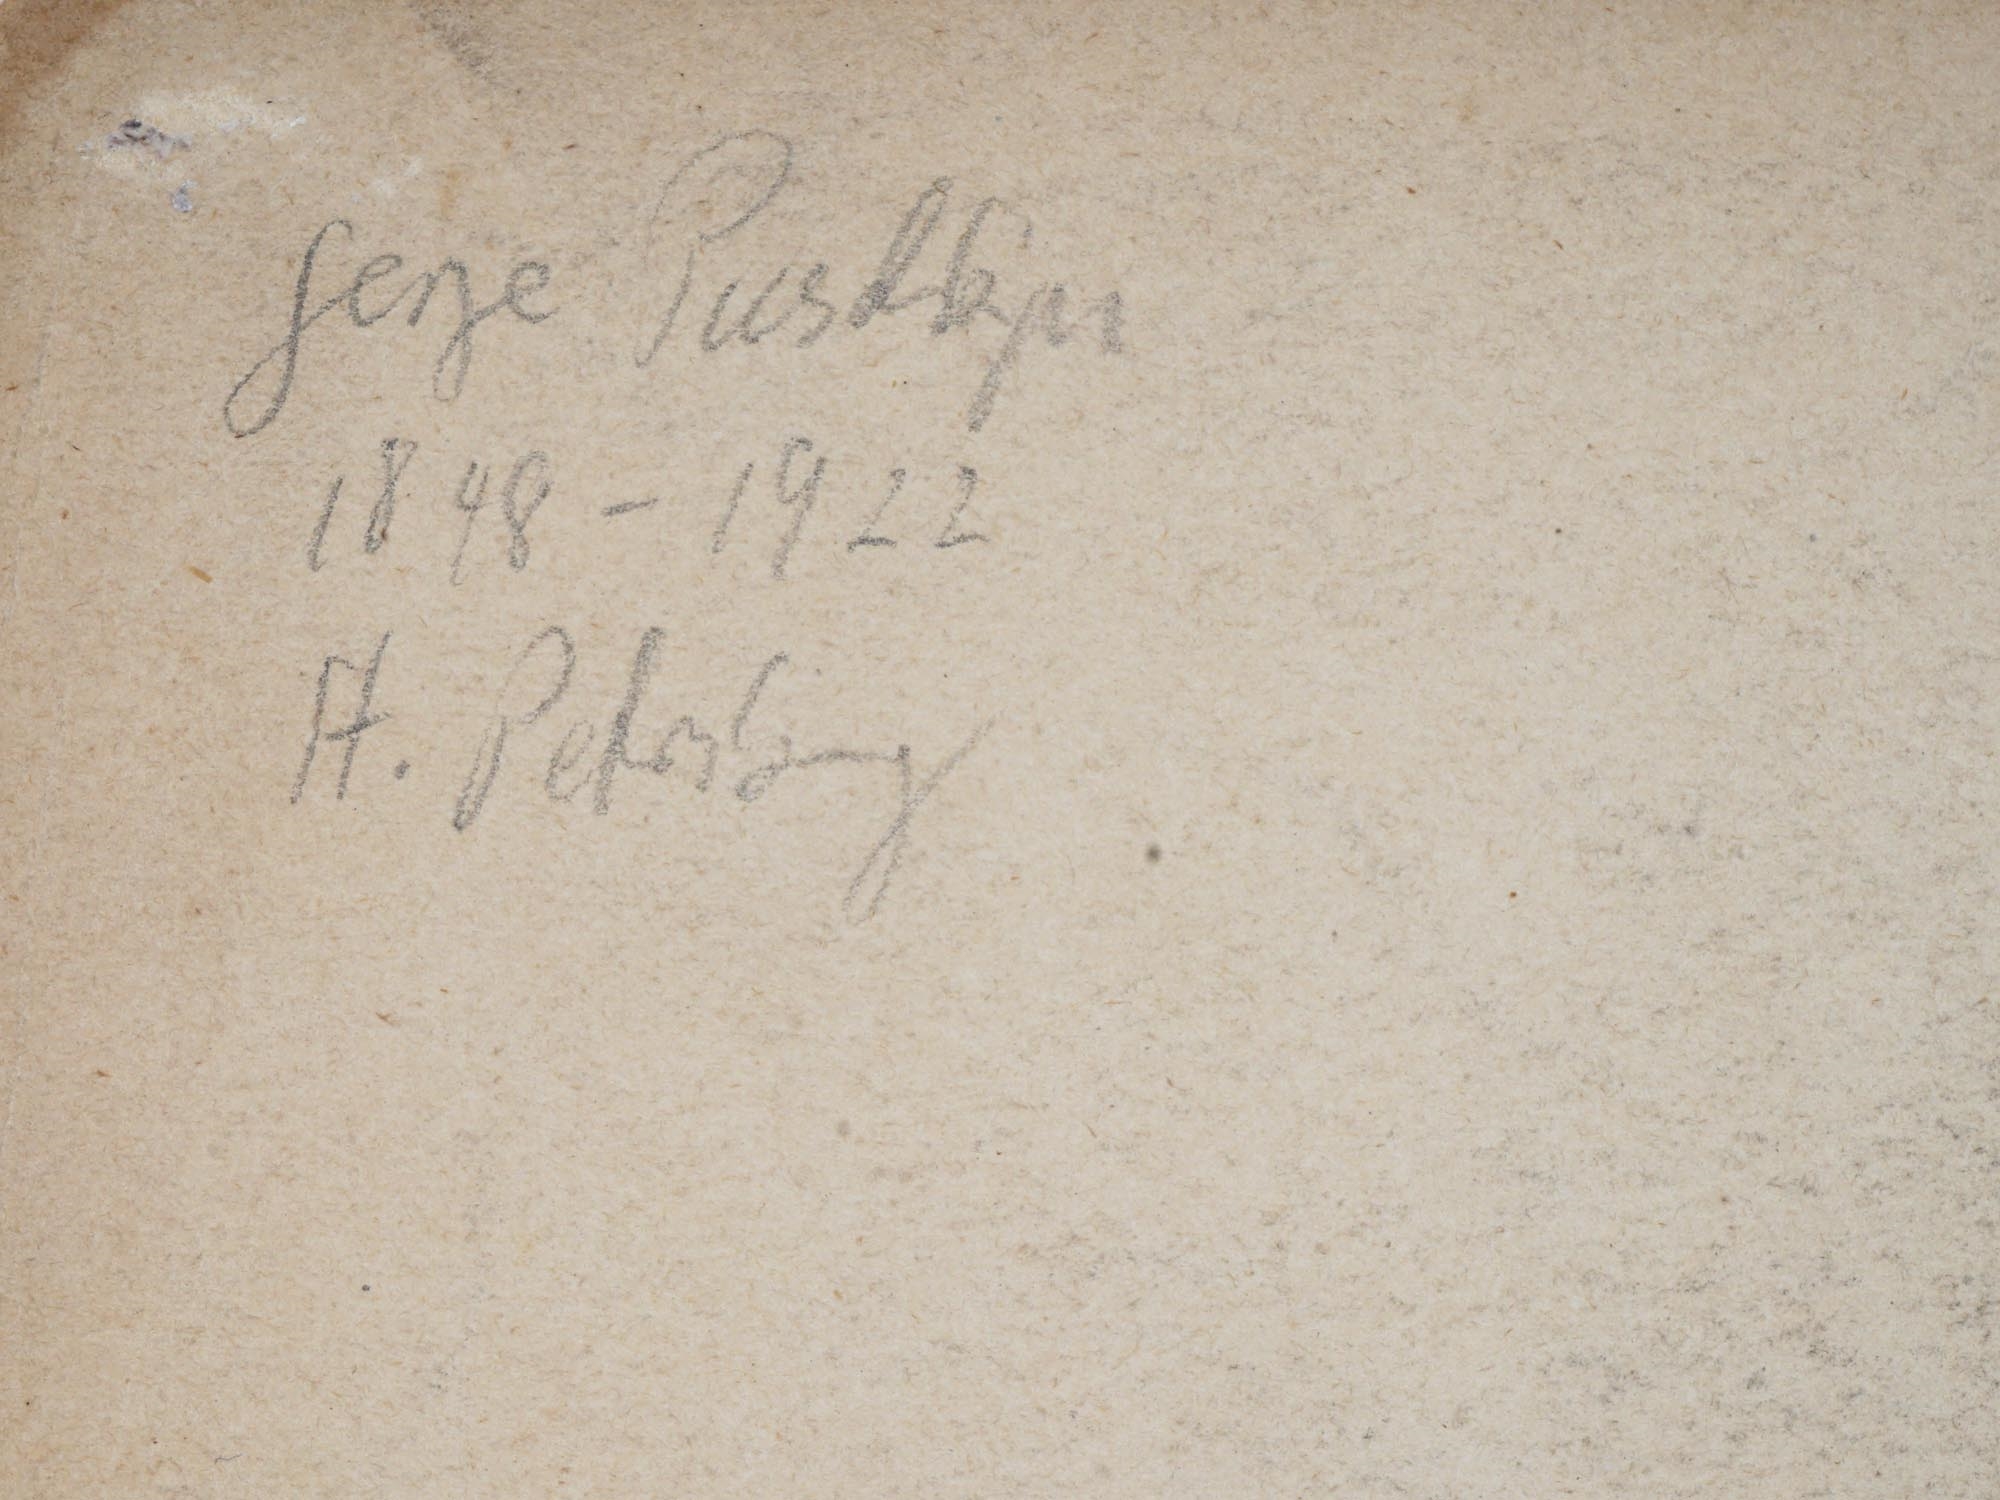 Serge
1848 - 1922
St. Petersburg